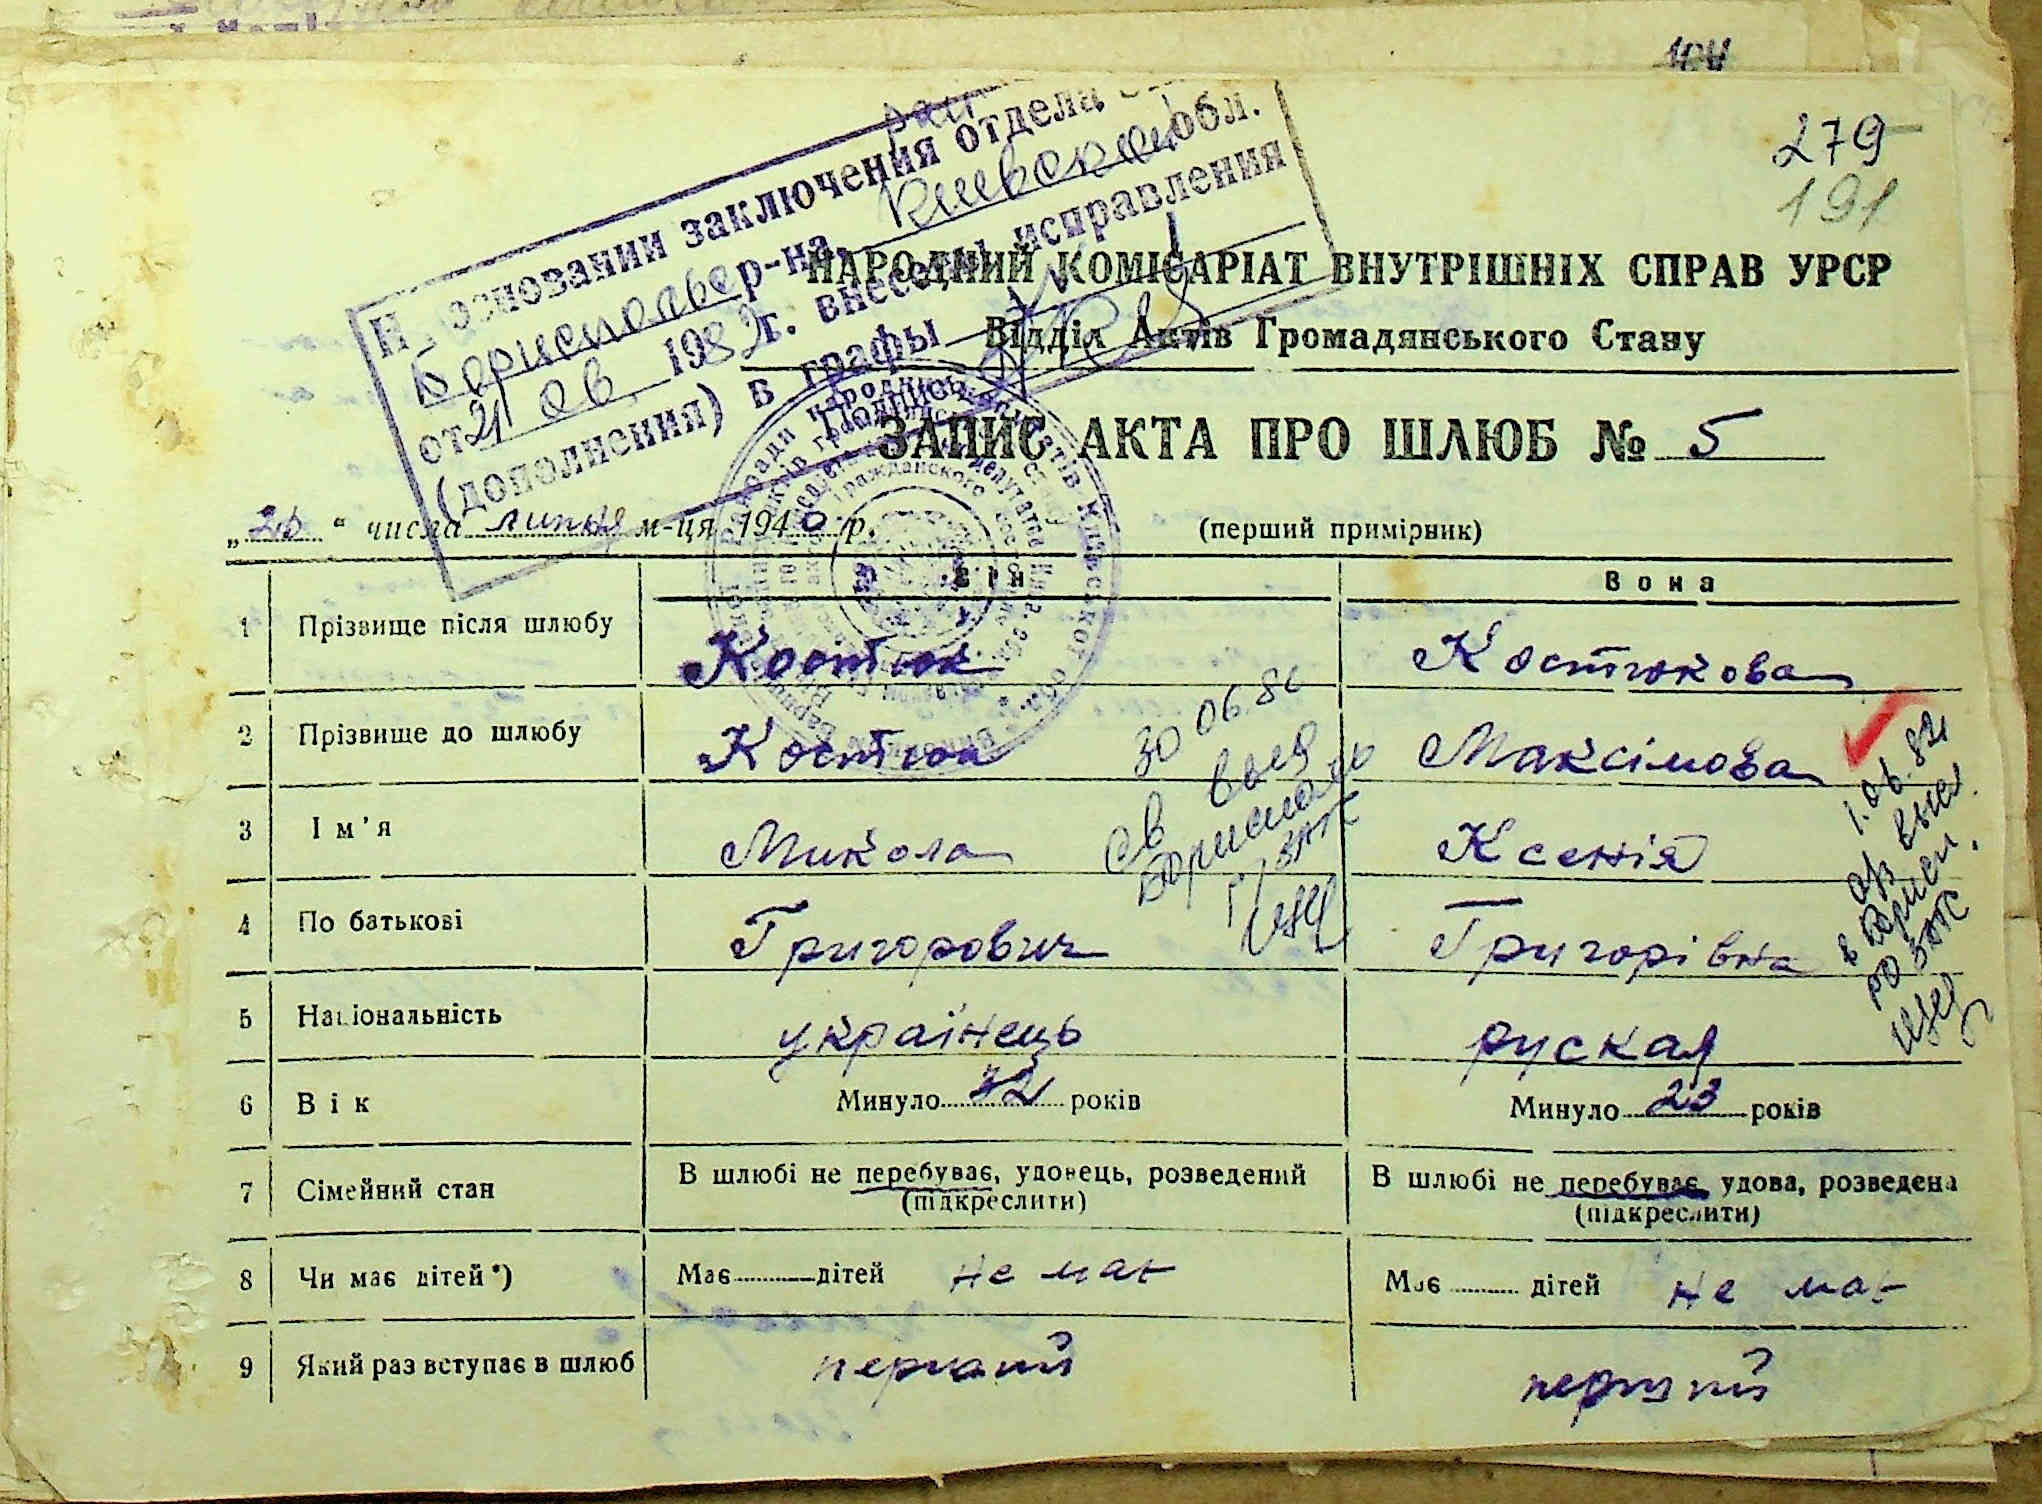 279
191
рай
На основании заключения отдела
Бориспольс р-на, Киевской обл.
от 21 06. 1982 г. внесены исправления
(дополнения) в графы
Подпись
НАРОДНИЙ КОМІСАРІАТ ВНУТРІШНІХ СПРАВ УРСР
Відділ Актів Громадянського Стану
ЗАПИС АКТА ПРО ШЛЮБ № 5
числа липня м-ця 1940 р.
(перший примірник)
Він Вона
1 Прізвище після шлюбу Костюк Костюкова
2 Прізвище до шлюбу Костюк Максімова
3 Ім'я Микола Ксенія
4 По батькові Григорович Григорівна
5 Національність українець руская
6 Вік Минуло 32 років Минуло 23 років
7 Сімейний стан В шлюбі не перебуває, удовець, розведений В шлюбі не перебуває, удова, розведена
(підкреслити) (підкреслити)
8 Чи має дітей*) Має дітей не має Має дітей не має
9 Який раз вступає в шлюб перший перший
30 06.8
св выд
Борисполь
ЗАГС
1.06.82
высл
в Борисп.
РО ЗАГС